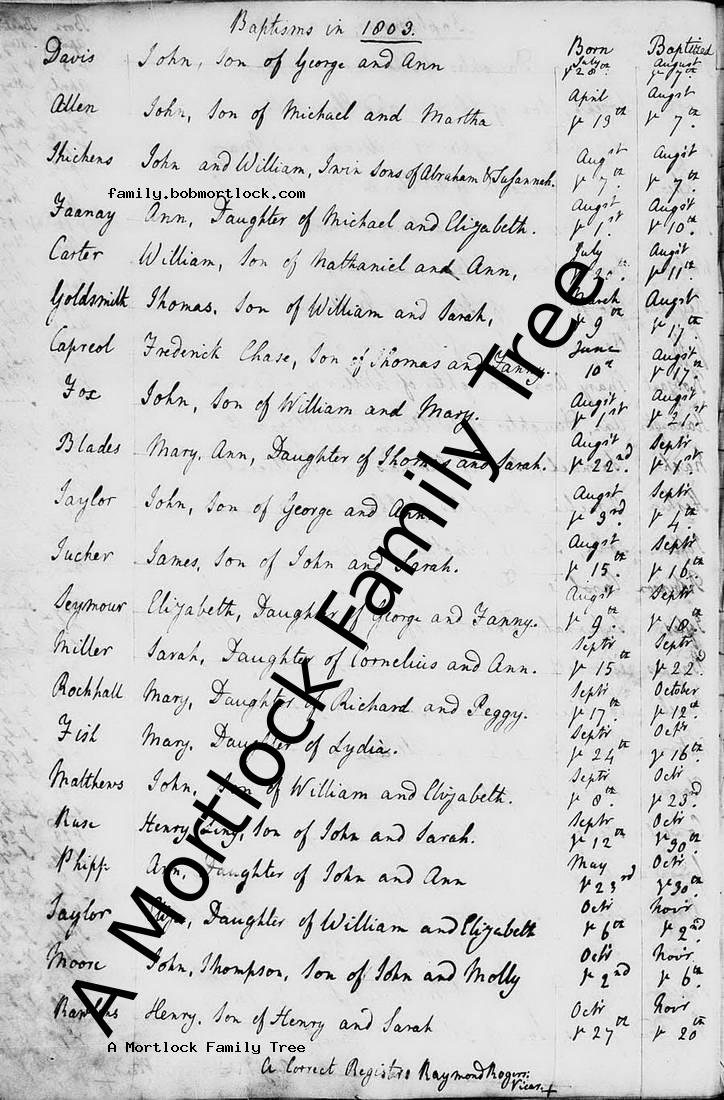 Baptisms in 1803.
Born Baptized
Davis John, Son of George and Ann July yᵉ 28ᵗʰ. August yᵉ 7ᵗʰ.
Allen John, Son of Michael and Martha April yᵉ 13ᵗʰ Augst yᵉ 7ᵗʰ.
Thickens John and William, Twin Sons of Abraham & Susannah. Augst yᵉ 7ᵗʰ. Augst yᵉ 7ᵗʰ.
family.bobmortlock.com
Ann, Daughter of Michael and Elizabeth. Augst yᵉ 1ˢᵗ Augst yᵉ 10ᵗʰ.
Carter William, Son of Nathaniel and Ann, July Augst yᵉ 11ᵗʰ
Goldsmith Thomas, Son of William and Sarah, March yᵉ 9ᵗʰ Augst yᵉ 17ᵗʰ
Capreol Frederick Chase, Son of Thomas and Fanny. June 10ᵗʰ Augst yᵉ 17ᵗʰ
Fox John, Son of William and Mary. Augst yᵉ 1ˢᵗ Augst yᵉ 21ˢᵗ
Blades Mary, Ann, Daughter of Thomas and Sarah. Augst yᵉ 22ⁿᵈ. Septr yᵉ 1ˢᵗ
Taylor John, Son of George and Ann. Augst yᵉ 3ʳᵈ. Septr yᵉ 4ᵗʰ.
Tucher James, Son of John and Sarah. Augst yᵉ 15ᵗʰ. Septr yᵉ 16ᵗʰ.
Seymour Elizabeth, Daughter of George and Fanny. Augst yᵉ 9ᵗʰ. Septr yᵉ 18ᵗʰ.
Miller Sarah, Daughter of Cornelius and Ann. Septr yᵉ 15ᵗʰ Septr yᵉ 22ᵈ
Rockhall Mary, Daughter of Richard and Peggy. Septr yᵉ 17ᵗʰ. October yᵉ 12ᵗʰ.
Fish Mary, Daughter of Lydia. Septr yᵉ 24ᵗʰ Octr yᵉ 16ᵗʰ.
Matthews John, Son of William and Elizabeth. Septr yᵉ 8ᵗʰ. Octr yᵉ 23ᵈ.
Ruse Henry Ling, Son of John and Sarah. Septr yᵉ 12ᵗʰ Octr yᵉ 30ᵗʰ.
Phipp Ann, Daughter of John and Ann May yᵉ 23ʳᵈ Octr yᵉ 30ᵗʰ.
Taylor Daughter of William and Elizabeth Octr yᵉ 6ᵗʰ Novr yᵉ 2ⁿᵈ.
Moore John, Thompson, Son of John and Molly Octr yᵉ 2ⁿᵈ Novr. yᵉ 6ᵗʰ.
Henry, Son of Henry and Sarah Octr yᵉ 27ᵗʰ Novr yᵉ 20ᵗʰ
A Mortlock Family Tree
A Mortlock Family Tree
A Correct Register: Raymond Rogers:
Vicar +